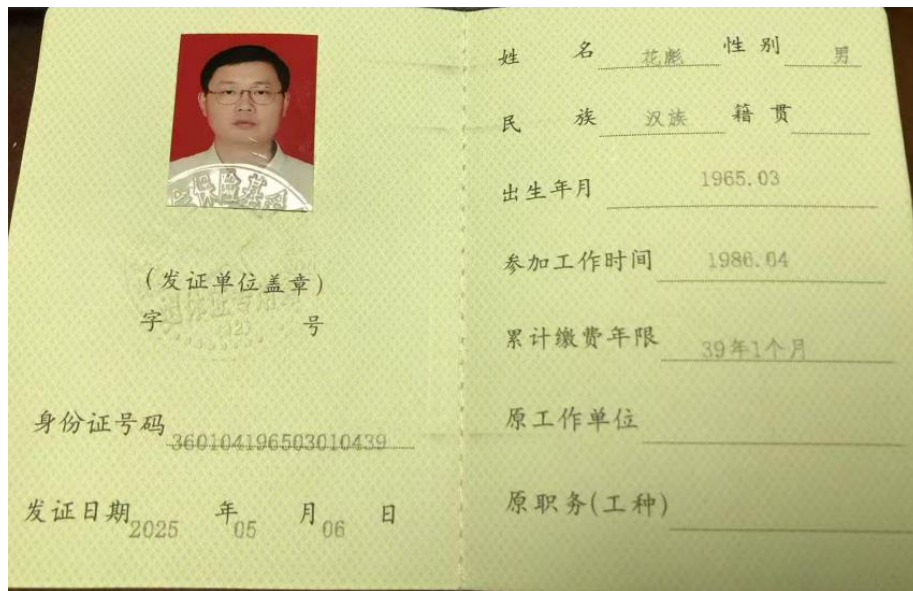 保险基金
(发证单位盖章)
退休证专用章
(2)
字 号
身份证号码 360104196503010439
发证日期 2025 年 05 月 06 日
姓 名 花彪 性 别 男
民 族 汉族 籍 贯
出生年月 1965.03
参加工作时间 1986.04
累计缴费年限 39年1个月
原工作单位
原职务(工种)